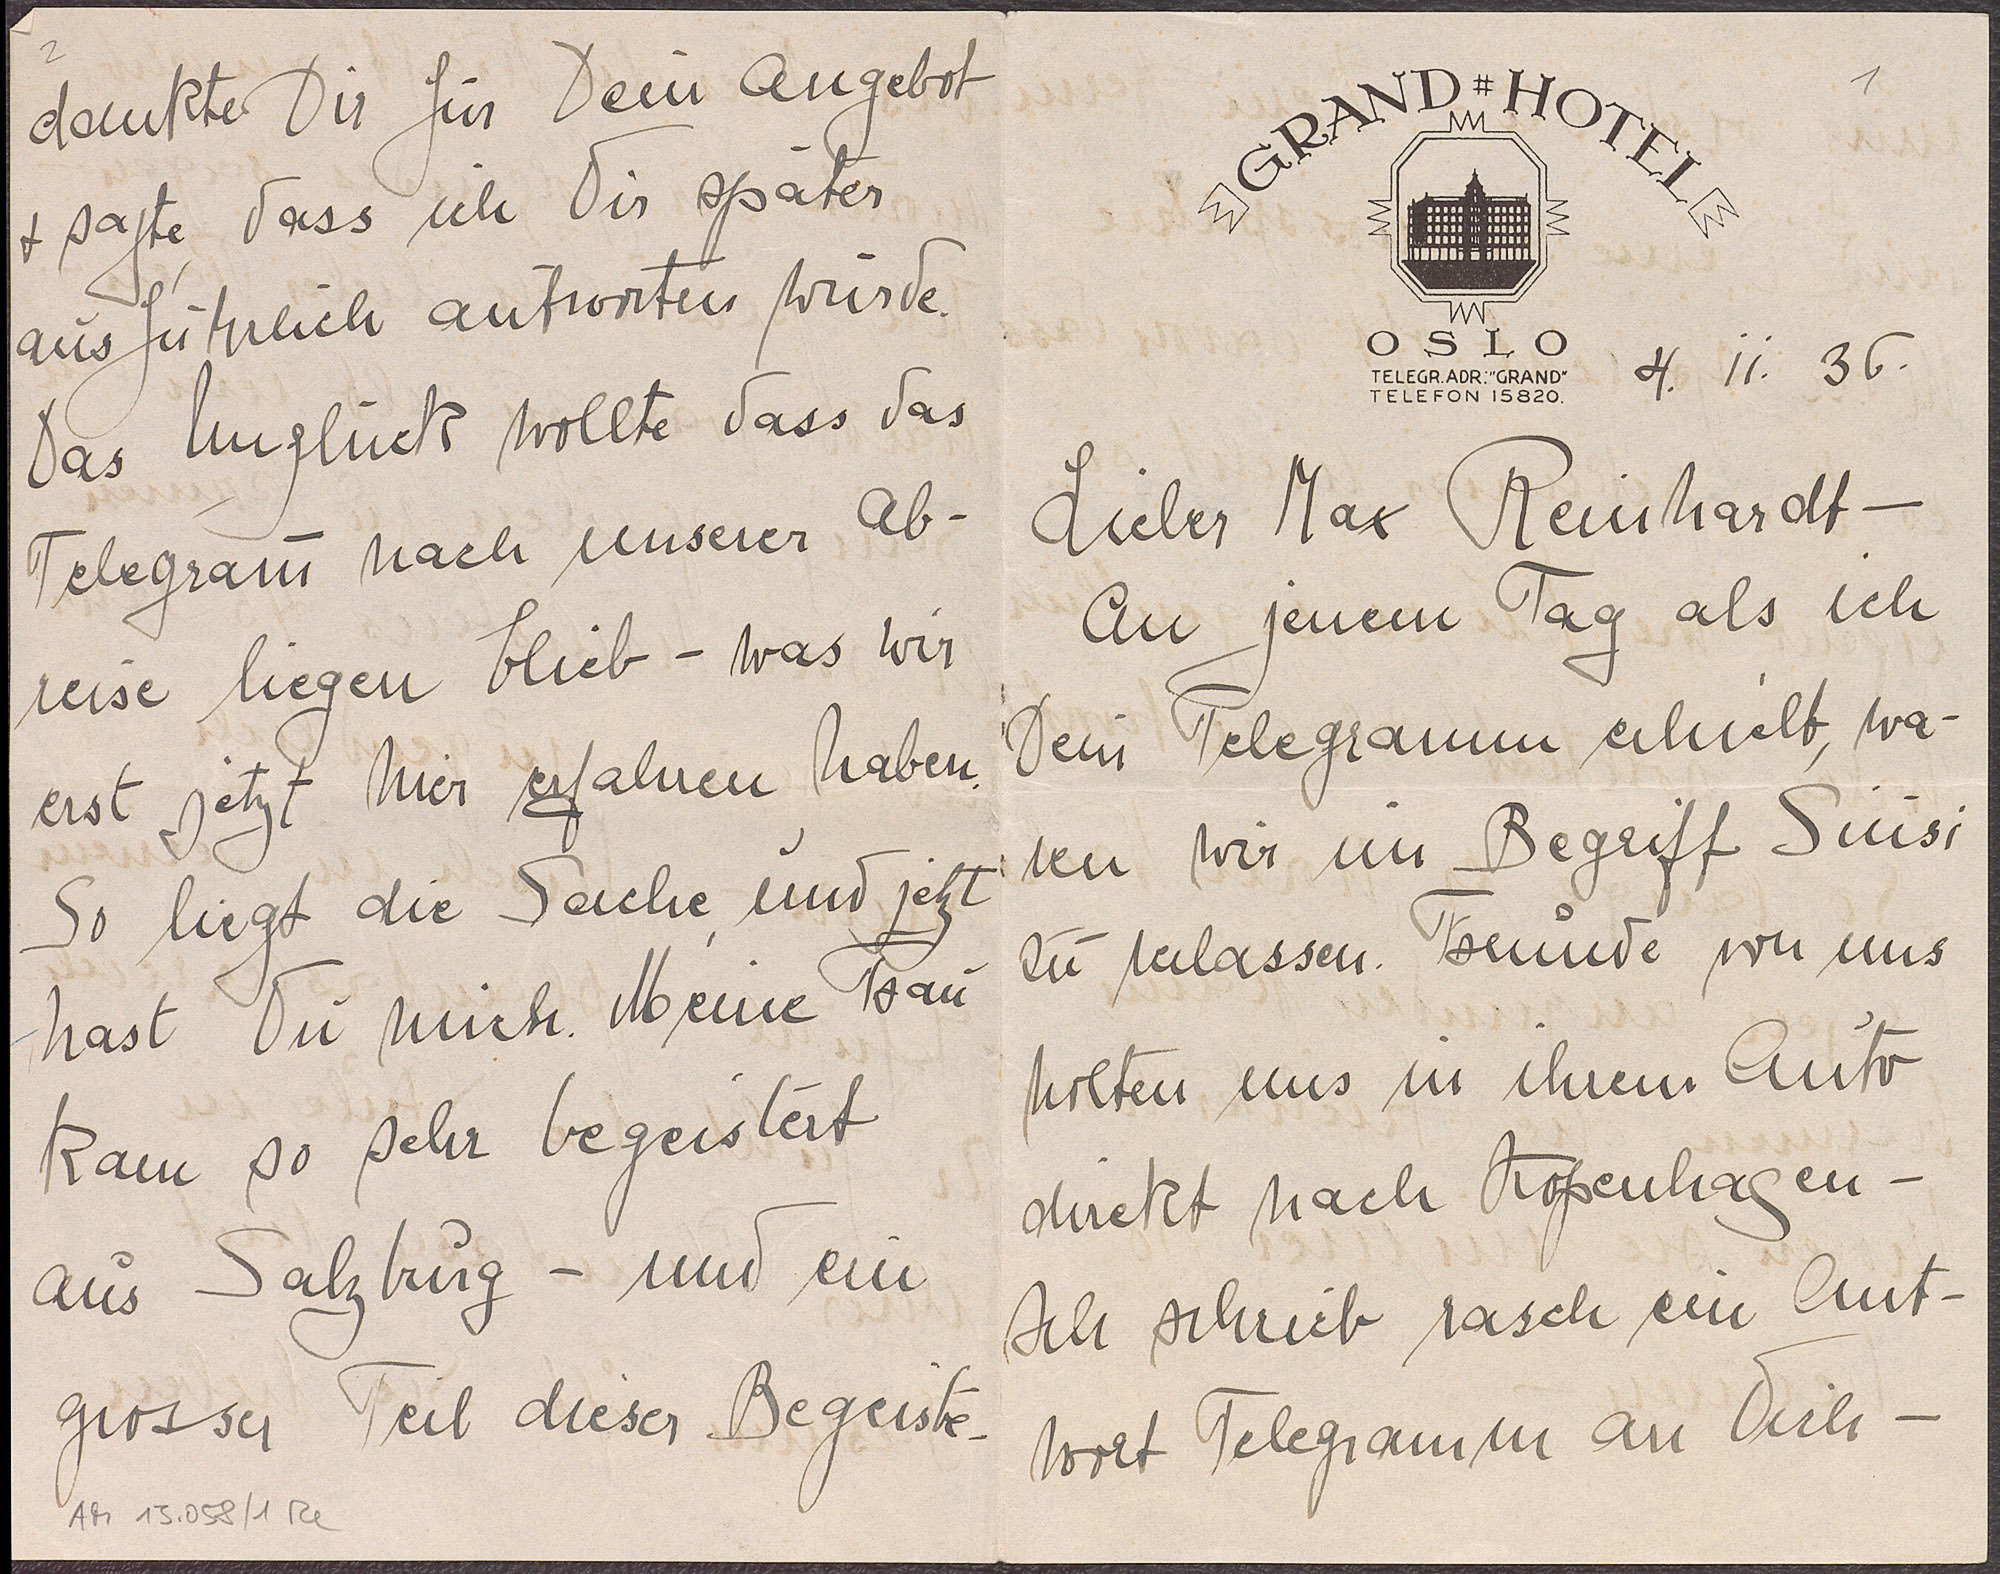 1
GRAND # HOTEL
OSLO
TELEGR.ADR.: "GRAND"
TELEFON 15820.
4. II. 36.
Lieber Max Reinhardt —
An jenem Tag als ich
Dein Telegramm erhielt, wa-
ren wir im Begriff Siusi
zu verlassen. Freunde von uns
holten uns in ihrem Auto
direkt nach Kopenhagen —
Ich schrieb rasch ein Ant-
wort Telegramm an Dich —
2
dankte Dir für Dein Angebot
+ sagte, dass ich Dir später
ausführlich antworten würde.
Das Unglück wollte dass das
Telegram̅ nach unserer Ab-
reise liegen blieb – was wir
erst jetzt hier erfahren haben.
So liegt die Sache, und jetzt
hast Du mich. Meine Frau
kam so sehr begeistert
aus Salzburg – und ein
grosser Teil dieser Begeiste-
AM 15.058/1 Re